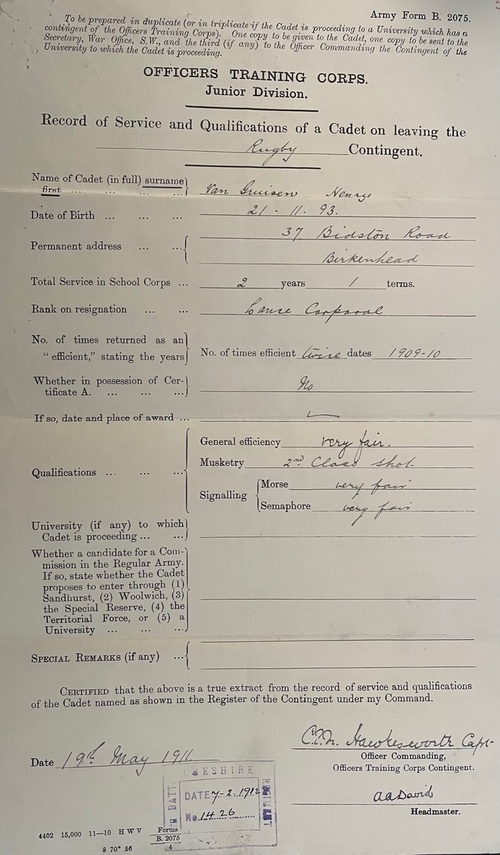 Army Form B. 2075.
To be prepared in duplicate (or in triplicate if the Cadet is proceeding to a University which has a
contingent of the Officers Training Corps). One copy to be given to the Cadet, one copy to be sent to the
Secretary, War Office, S.W., and the third (if any) to the Officer Commanding the Contingent of the
University to which the Cadet is proceeding.
OFFICERS TRAINING CORPS.
Junior Division.
Record of Service and Qualifications of a Cadet on leaving the
Rugby Contingent.
Name of Cadet (in full) surname
first ... ... ... ... Van Gruisen Henry
Date of Birth ... ... ... 21 - 11. 93.
Permanent address ... ... 37 Bidston Road
Birkenhead
Total Service in School Corps ... 2 years 1 terms.
Rank on resignation ... ... Lance Corporal
No. of times returned as an
"efficient," stating the years No. of times efficient twice dates 1909-10
Whether in possession of Cer-
tificate A. ... ... ... No
If so, date and place of award ...
Qualifications ... ... ...
General efficiency very fair.
Musketry 2nd Class shot.
Signalling
Morse very fair
Semaphore very fair
University (if any) to which
Cadet is proceeding ... ...
Whether a candidate for a Com-
mission in the Regular Army.
If so, state whether the Cadet
proposes to enter through (1)
Sandhurst, (2) Woolwich, (3)
the Special Reserve, (4) the
Territorial Force, or (5) a
University ... ... ...
SPECIAL REMARKS (if any) ...
CERTIFIED that the above is a true extract from the record of service and qualifications
of the Cadet named as shown in the Register of the Contingent under my Command.
Hawkesworth Capt
Officer Commanding,
Officers Training Corps Contingent.
Date 19th May 1911
AADavid
Headmaster.
CHESHIRE
DATE 7-2.1912
No. 1426
4402 15,000 11-10 H W V Forms
B. 2075
4
8 70 56